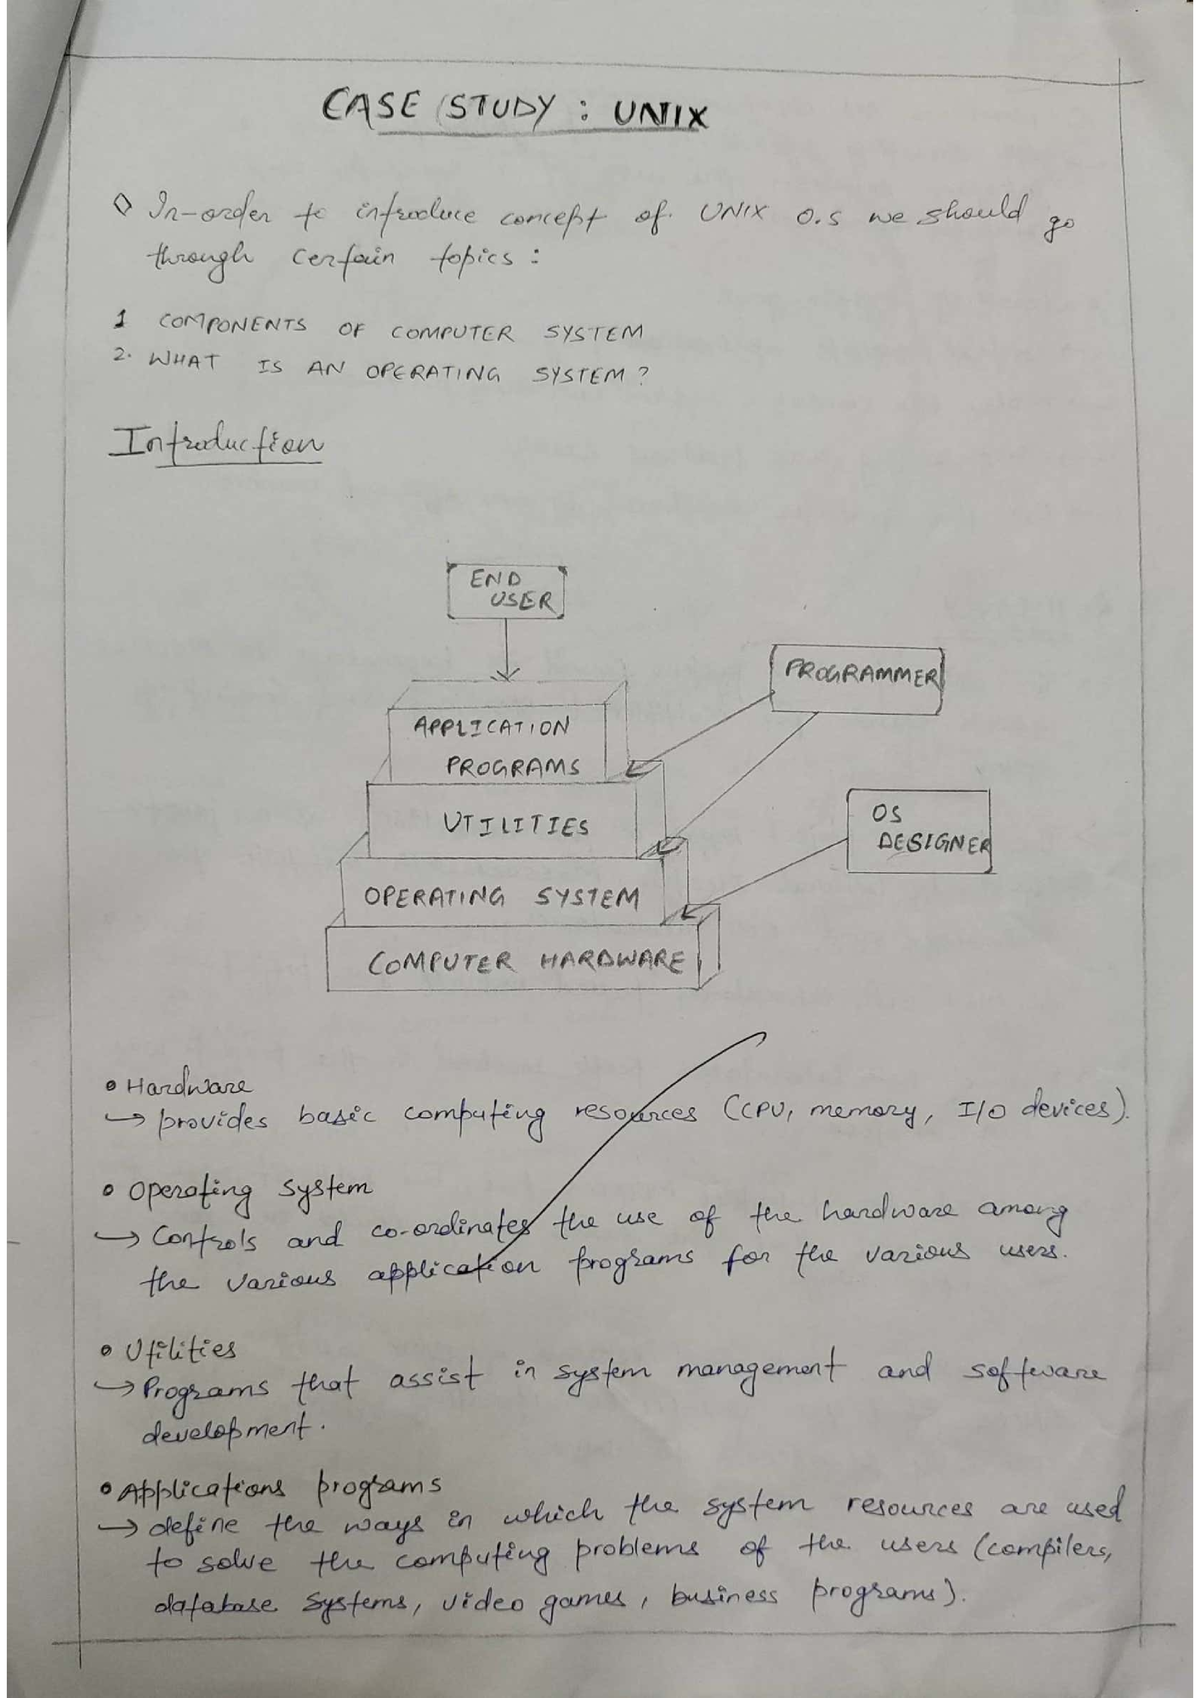 CASE STUDY : UNIX
◇ In-order to introduce concept of UNIX O.S we should go
through certain topics :
1 COMPONENTS OF COMPUTER SYSTEM
2. WHAT IS AN OPERATING SYSTEM?
Introduction
END
USER
PROGRAMMER
APPLICATION
PROGRAMS
UTILITIES
OS
DESIGNER
OPERATING SYSTEM
COMPUTER HARDWARE
• Hardware
→ provides basic computing resources (CPU, memory, I/O devices).
• Operating system
→ Controls and co-ordinates the use of the hardware among
the various application programs for the various users.
• Utilities
→ Programs that assist in system management and software
development.
• Applications programs
→ define the ways in which the system resources are used
to solve the computing problems of the users (compilers,
database systems, video games, business programs).